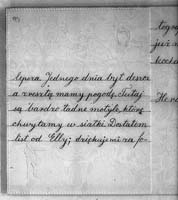 lepera Jednego dnia był deszcz
a resztą mamy pogodę. Tutaj
są bardzo ładne motyle, które
chwytamy w siatki. Dostałem
list od Elly; dziękujemi za fo-
togra
już
kocha